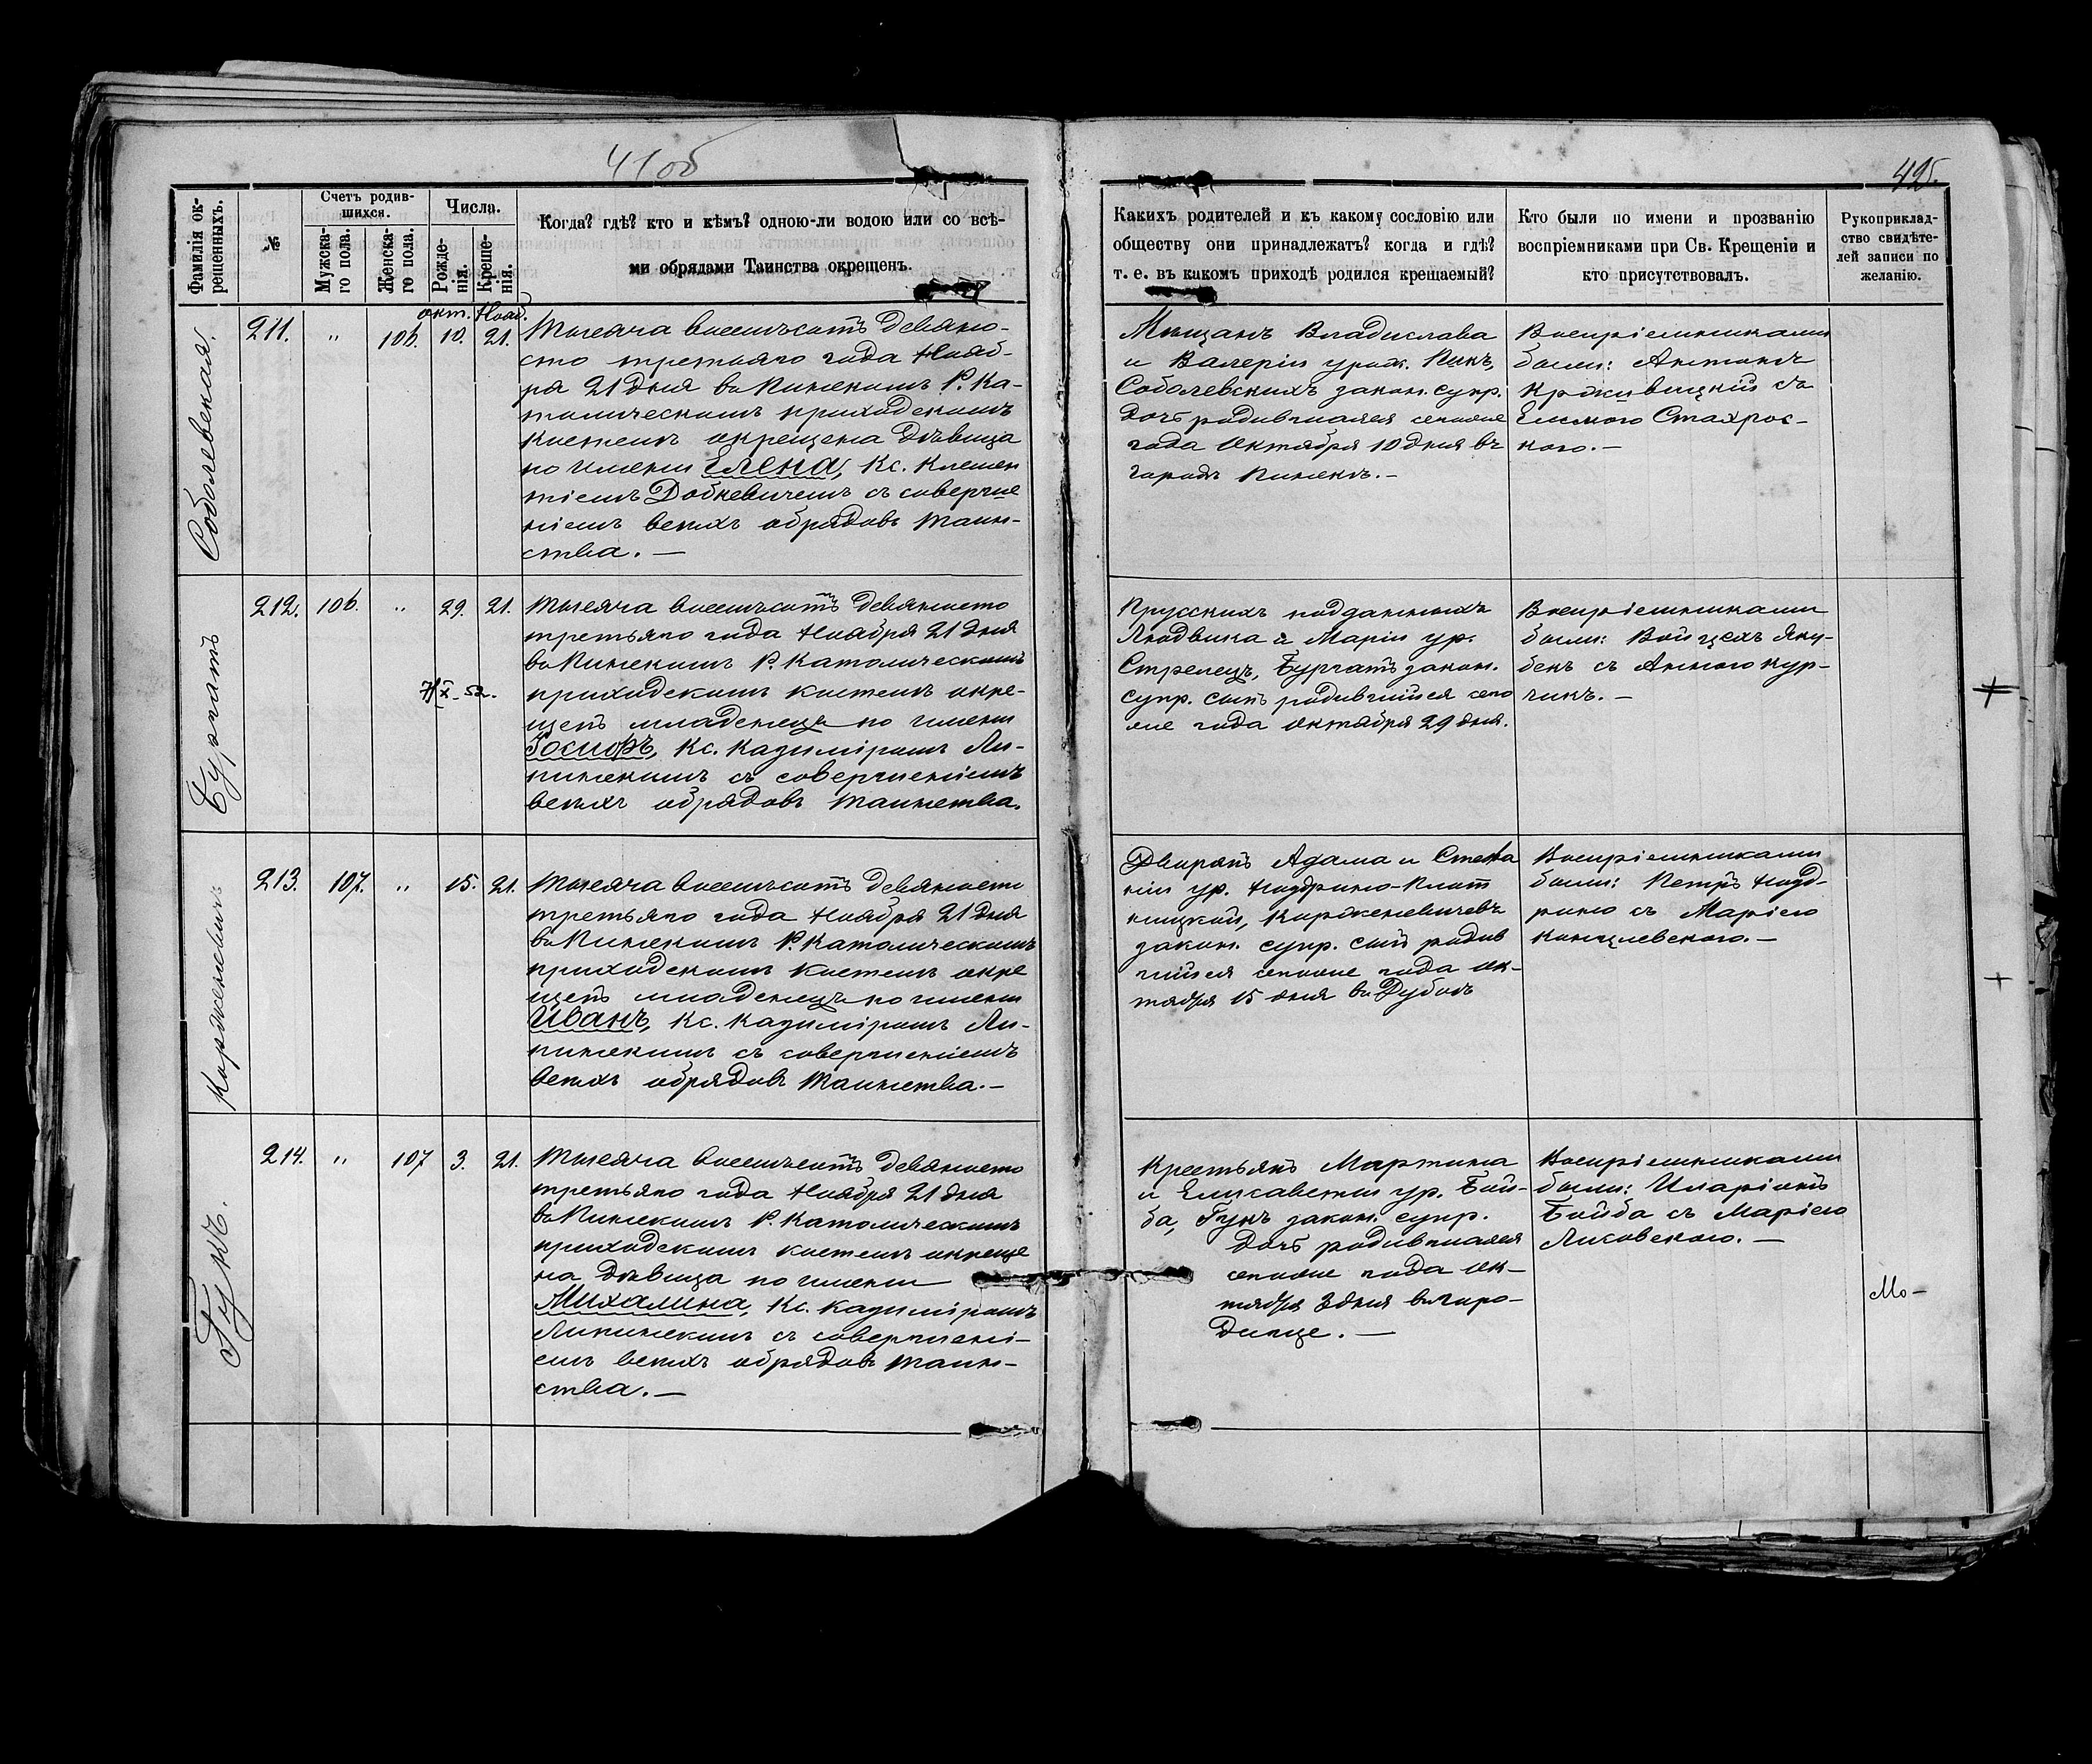 41об
42б.
Фамилія ок-
решенныхъ.
№
Счетъ родив-
шихся.
Мужска-
го пола.
Женска-
го пола.
Числа.
Рожде-
нія.
Креще-
нія.
Когда? гдѣ? кто и кѣмъ? одною-ли водою или со всѣ-
ми обрядами Таинства окрещенъ.
Какихъ родителей и къ какому сословію или
обществу они принадлежатъ? когда и гдѣ?
т. е. въ какомъ приходѣ родился крещаемый?
Кто были по имени и прозванію
воспріемниками при Св. Крещеніи и
кто присутствовалъ.
Рукоприклад-
ство свидѣте-
лей записи по
желанію.
окт. Нояб.
Соболевская.
211. " 106. 10. 21.
Тысяча восемьсотъ девяно-
сто третьяго года Нояб-
ря 21 дня въ Пинскомъ Р. Ка-
толическомъ приходскомъ
костелѣ окрещена дѣвица
по имени Елена, Кс. Клемен
тіемъ Добкевичемъ съ соверше
ніемъ всѣхъ обрядовъ таин-
ства. —
Мѣщанъ Владислава
и Валеріи урож. Пикъ,
Соболевскихъ закон. супр.
дочь родившаяся сегоже
года Октября 10 дня въ
городѣ Пинскѣ. -
Воспріемниками
были: Антонъ
Крживицкій съ
Еленою Стахрос-
кою. —
Бургатъ
212. 106. " 29. 21.
Тысяча восемьсотъ девяносто
третьяго года Ноября 21 дня
въ Пинскомъ Р. Католическомъ
приходскомъ костелѣ окре-
щенъ младенецъ по имени
Іосифъ, Кс. Казиміромъ Ли-
пинскимъ съ совершеніемъ
всѣхъ обрядовъ таинства.
Прусскихъ подданныхъ
Людвика и Маріи ур.
Стрелецъ, Бургатъ закон.
супр. сынъ родившійся сего
же года Октября 29 дня.
Воспріемниками
были: Войцехъ Яку-
бекъ съ Анною Кур-
чикъ. —
Корженевичъ
213. 107. " 15. 21.
Тысяча восемьсотъ девяносто
третьяго года Ноября 21 дня
въ Пинскомъ Р. Католическомъ
приходскомъ костелѣ окре
щенъ младенецъ по имени
Иванъ, Кс. Казиміромъ Ли-
пинскимъ съ совершеніемъ
всѣхъ обрядовъ таинства. —
Дворянъ Адама и Стефа
ніи ур.
Корженевичевъ
закон. супр. сынъ родив
шійся сегоже года Ок-
тября 15 дня въ Дубоѣ
Воспріемниками
были: Петръ
съ Маріею
Концевскою. —
Гукъ.
214. " 107 3. 21.
Тысяча восемьсотъ девяносто
третьяго года Ноября 21 дня
въ Пинскомъ Р. Католическомъ
приходскомъ костелѣ окреще
на дѣвица по имени
Михалина, Кс. Казиміромъ
Липинскимъ съ совершені-
емъ всѣхъ обрядовъ таин-
ства. —
Крестьянъ Мартина
и Елисаветы ур. Бой-
ба, Гукъ закон. супр.
дочь родившаяся
сегоже года Ок-
тября 3 дня въ Горо-
дище. —
Воспріемниками
были: Иларіонъ
Бойба съ Маріею
Лисовскою. —
Мо-